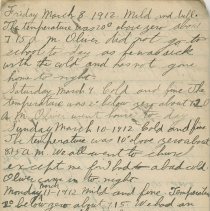 Friday March 8, 1912. Mild and
The temperature was 20° above zero about
7:15 A.M. Oliver did not go to
school to day as he was sick
with the cold and has not gone
home to night.
Saturday March 9. Cold and fine The
temperature was 2° below zero about
A.M. Oliver went home to day
Sunday March 10-1912. Cold and fine
The temperature was 10° above zero about
8:15 A.M. We all went to church
except as he had a bad cold
Olive came in to night
Monday 11, 1912 Mild and fine. Temperature
2° below zero about 7:15. We had an